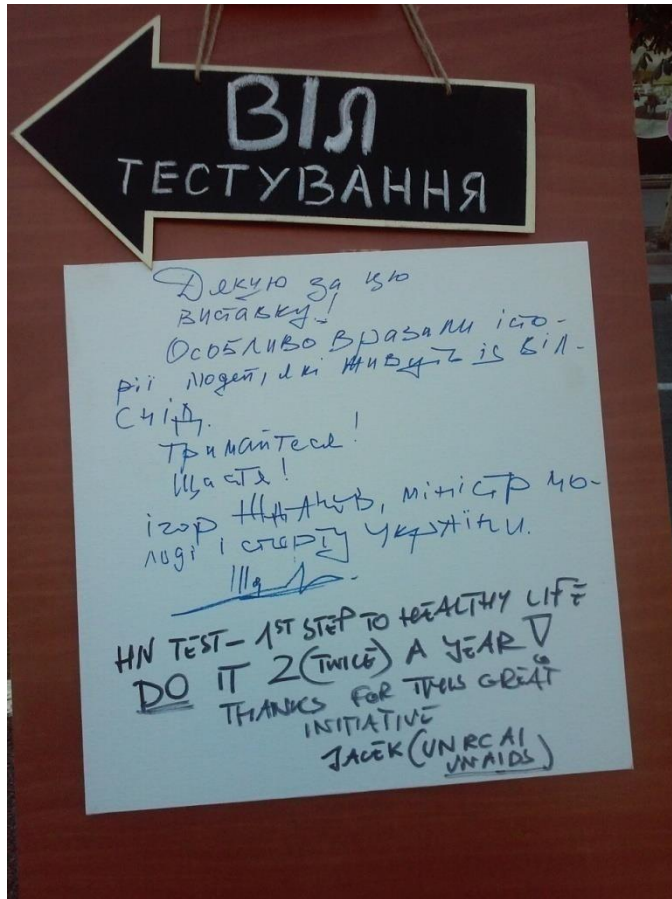 ВІЛ
ТЕСТУВАННЯ
Дякую за цю
виставку!
Особливо вразили істо-
рії людей, які живуть із ВІЛ-
СНІД.
Тримайтеся!
Щастя!
ігор Жданов, міністр мо-
лоді і спорту України.
HIV TEST - 1ST STEP TO HEALTHY LIFE
DO IT 2 (TWICE) A YEAR
THANKS FOR THIS GREAT
INITIATIVE
JACEK (UN RC AI
UNAIDS)